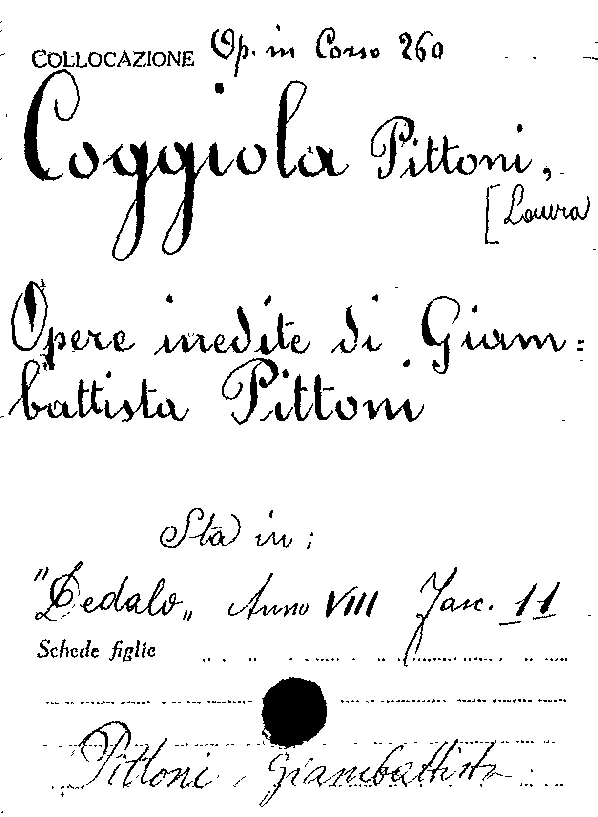 COLLOCAZIONE Op. in Corso 260
Coggiola Pittoni,
[Laura
Opere inedite di Giam=
battista Pittoni
Sta in:
"Dedalo„ Anno VIII Fasc. 11
Schede figlie
Pittoni, Giambattista